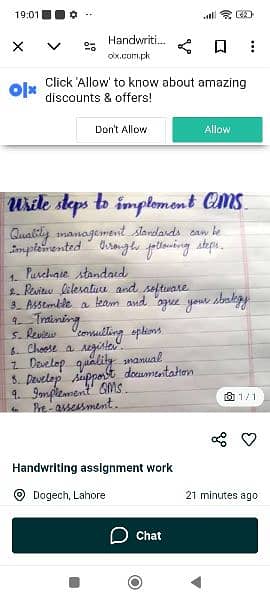 19:01
62
Handwriti...
olx.com.pk
olx
Click 'Allow' to know about amazing
discounts & offers!
Don't Allow
Allow
Write steps to implement QMS.
Quality management standards can be
implemented through following steps.
1. Purchase standard
2. Review literature and software
3. Assemble a team and agree your strategy
4. Training
5. Review consulting options
6. Choose a register.
7. Develop quality manual
8. Develop support documentation
9. Implement QMS.
Pre-assessment.
1 / 1
Handwriting assignment work
Dogech, Lahore
21 minutes ago
Chat